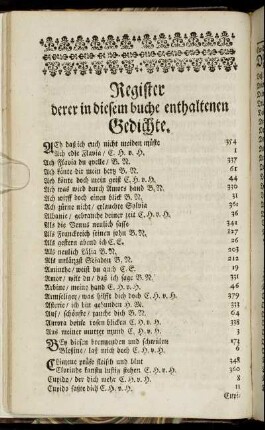 Register
derer in diesem buche enthaltenen
Gedichte.
ACh daß ich euch nicht meiden müste 354
Ach edle Flavia/ C. H. v. H. 1
Ach Flavia du quelle/ B. N. 337
Ach könte dir mein hertz B. N. 61
Ach könte doch mein geist C. H. v. H. 44
Ach was wird durch Amors hand B. N. 330
Ach wirff doch einen blick B. N. 31
Ach zürne nicht/ Sylvia 361
Albanie/ gebrauche deiner zeit C. H. v. H. 36
Als die Venus neulich sasse 342
Als Franckreich seinen sohn B. N. 327
Als gestern abend ich C. E. 26
Als neulich B. N. 203
Als B. N. 212
Amiathe/ weist du C. E. 19
Amor/ wiste du/ daß ich sage B. N. 331
Arbine/ meine hand C. E. v. H. 46
Armseliger/ was hilfft dich doch C. H. v. H. 379
Asterie/ ich bin gebunden H. W. 333
Auf/ schönste/ tauche dich B. N. 64
Aurora deine rosen blicken C. H. v. H. 338
Aus meiner mutter C. H. v. H. 3
BEy diesen brennenden und schwülen 173
Blesine/ laß mich doch C. H. v. H. 6
Climene prüfe fleisch und blut 348
Clorindis kanstu lustig stehen C. H. v. H. 360
Cupido/ der dich mehr C. H. v. H. 8
Cupido sagte dich C. H. v. H. 11
Cupi-